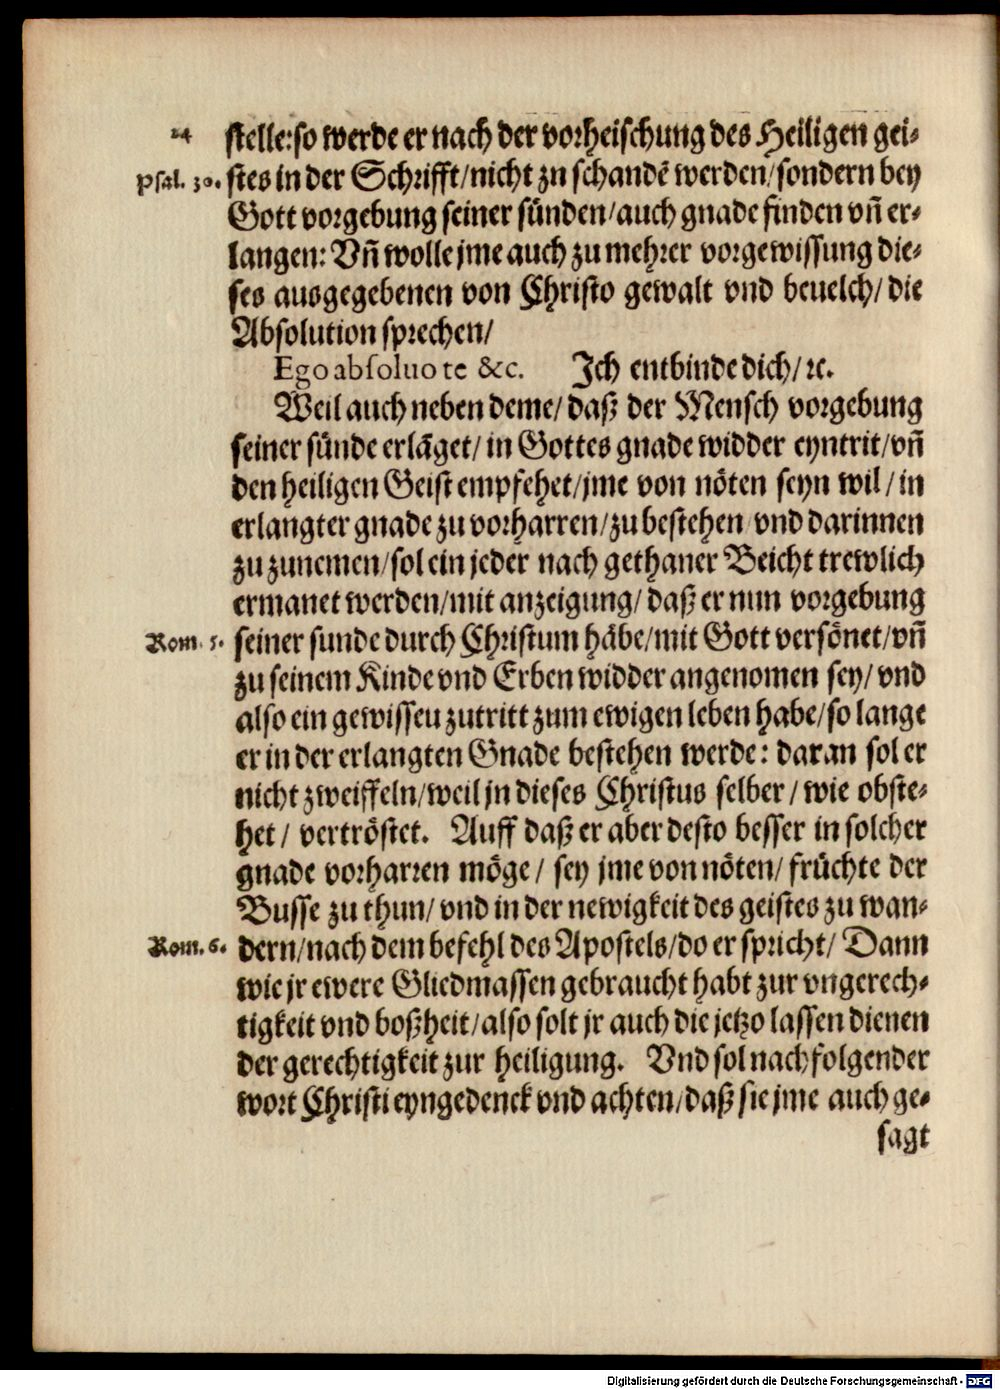 24
stelle: so werde er nach der vorheischung des Heiligen gei⸗
Psal. 30. stes in der Schrifft/ nicht zu schandē werden/ sondern bey
Gott vorgebung seiner sünden/ auch gnade finden vñ er⸗
langen: Vñ wolle jme auch zu mehrer vorgewissung die⸗
ses ausgegebenen von Christo gewalt vnd beuelch/ die
Absolution sprechen/
Ego absoluo te &c. Ich entbinde dich/ ꝛc.
Weil auch neben deme/ daß der Mensch vorgebung
seiner sünde erlāget/ in Gottes gnade widder eyntrit/ vñ
den heiligen Geist empfehet/ jme von nöten seyn wil/ in
erlangter gnade zu vorharren/ zu bestehen vnd darinnen
zu zunemen/ sol ein jeder nach gethaner Beicht trewlich
ermanet werden/ mit anzeigung/ daß er nun vorgebung
Rom. 5. seiner sunde durch Christum häbe/ mit Gott versönet/ vñ
zu seinem Kinde vnd Erben widder angenomen sey/ vnd
also ein gewissen zutritt zum ewigen leben habe/ so lange
er in der erlangten Gnade bestehen werde: daran sol er
nicht zweiffeln/ weil jn dieses Christus selber/ wie obste⸗
het/ vertröstet. Auff daß er aber desto besser in solcher
gnade vorharren möge/ sey jme von nöten/ früchte der
Busse zu thun/ vnd in der newigkeit des geistes zu wan⸗
Rom. 6. dern/ nach dem befehl des Apostels/ do er spricht/ Dann
wie jr ewere Gliedmassen gebraucht habt zur vngerech⸗
tigkeit vnd boßheit/ also solt jr auch die jetzo lassen dienen
der gerechtigkeit zur heiligung. Vnd sol nachfolgender
wort Christi eyngedenck vnd achten/ daß sie jme auch ge⸗
sagt
Digitalisierung gefördert durch die Deutsche Forschungsgemeinschaft - DFG